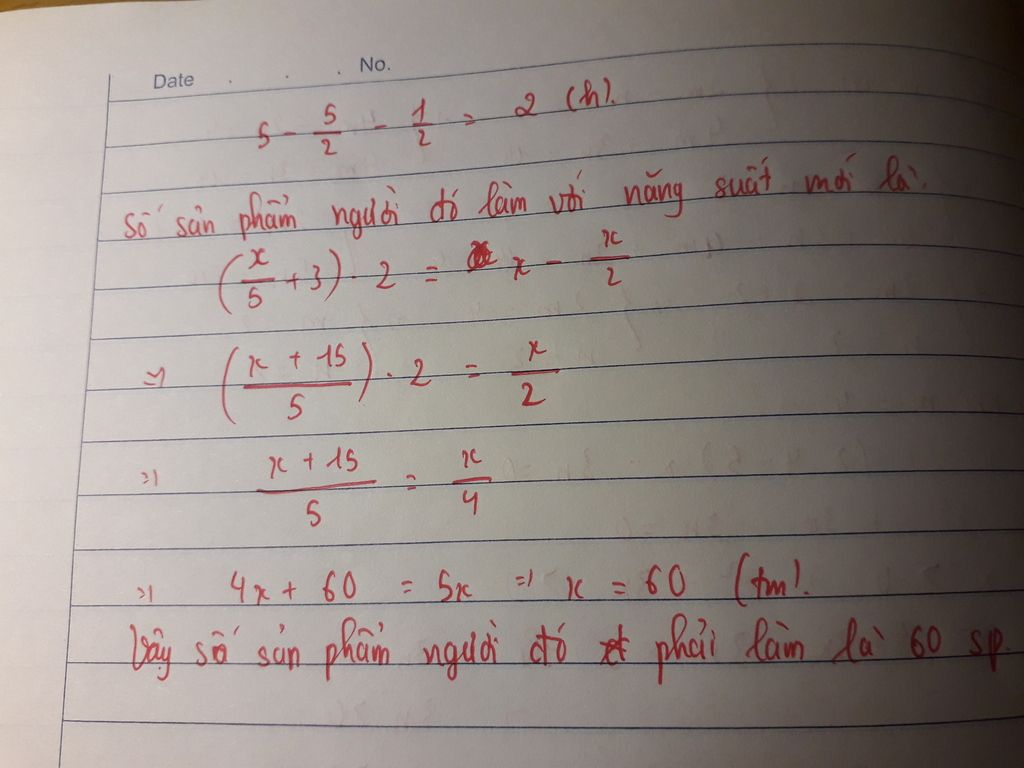 Date . . . No.
5 - 5/2 - 1/2 = 2 (h).
Số sản phẩm người đó làm với năng suất mới là:
(x/5 + 3) . 2 = x - x/2
=> ((x + 15)/5) . 2 = x/2
=> (x + 15)/5 = x/4
=> 4x + 60 = 5x => x = 60 (tm).
Vậy số sản phẩm người đó phải làm là 60 sp.